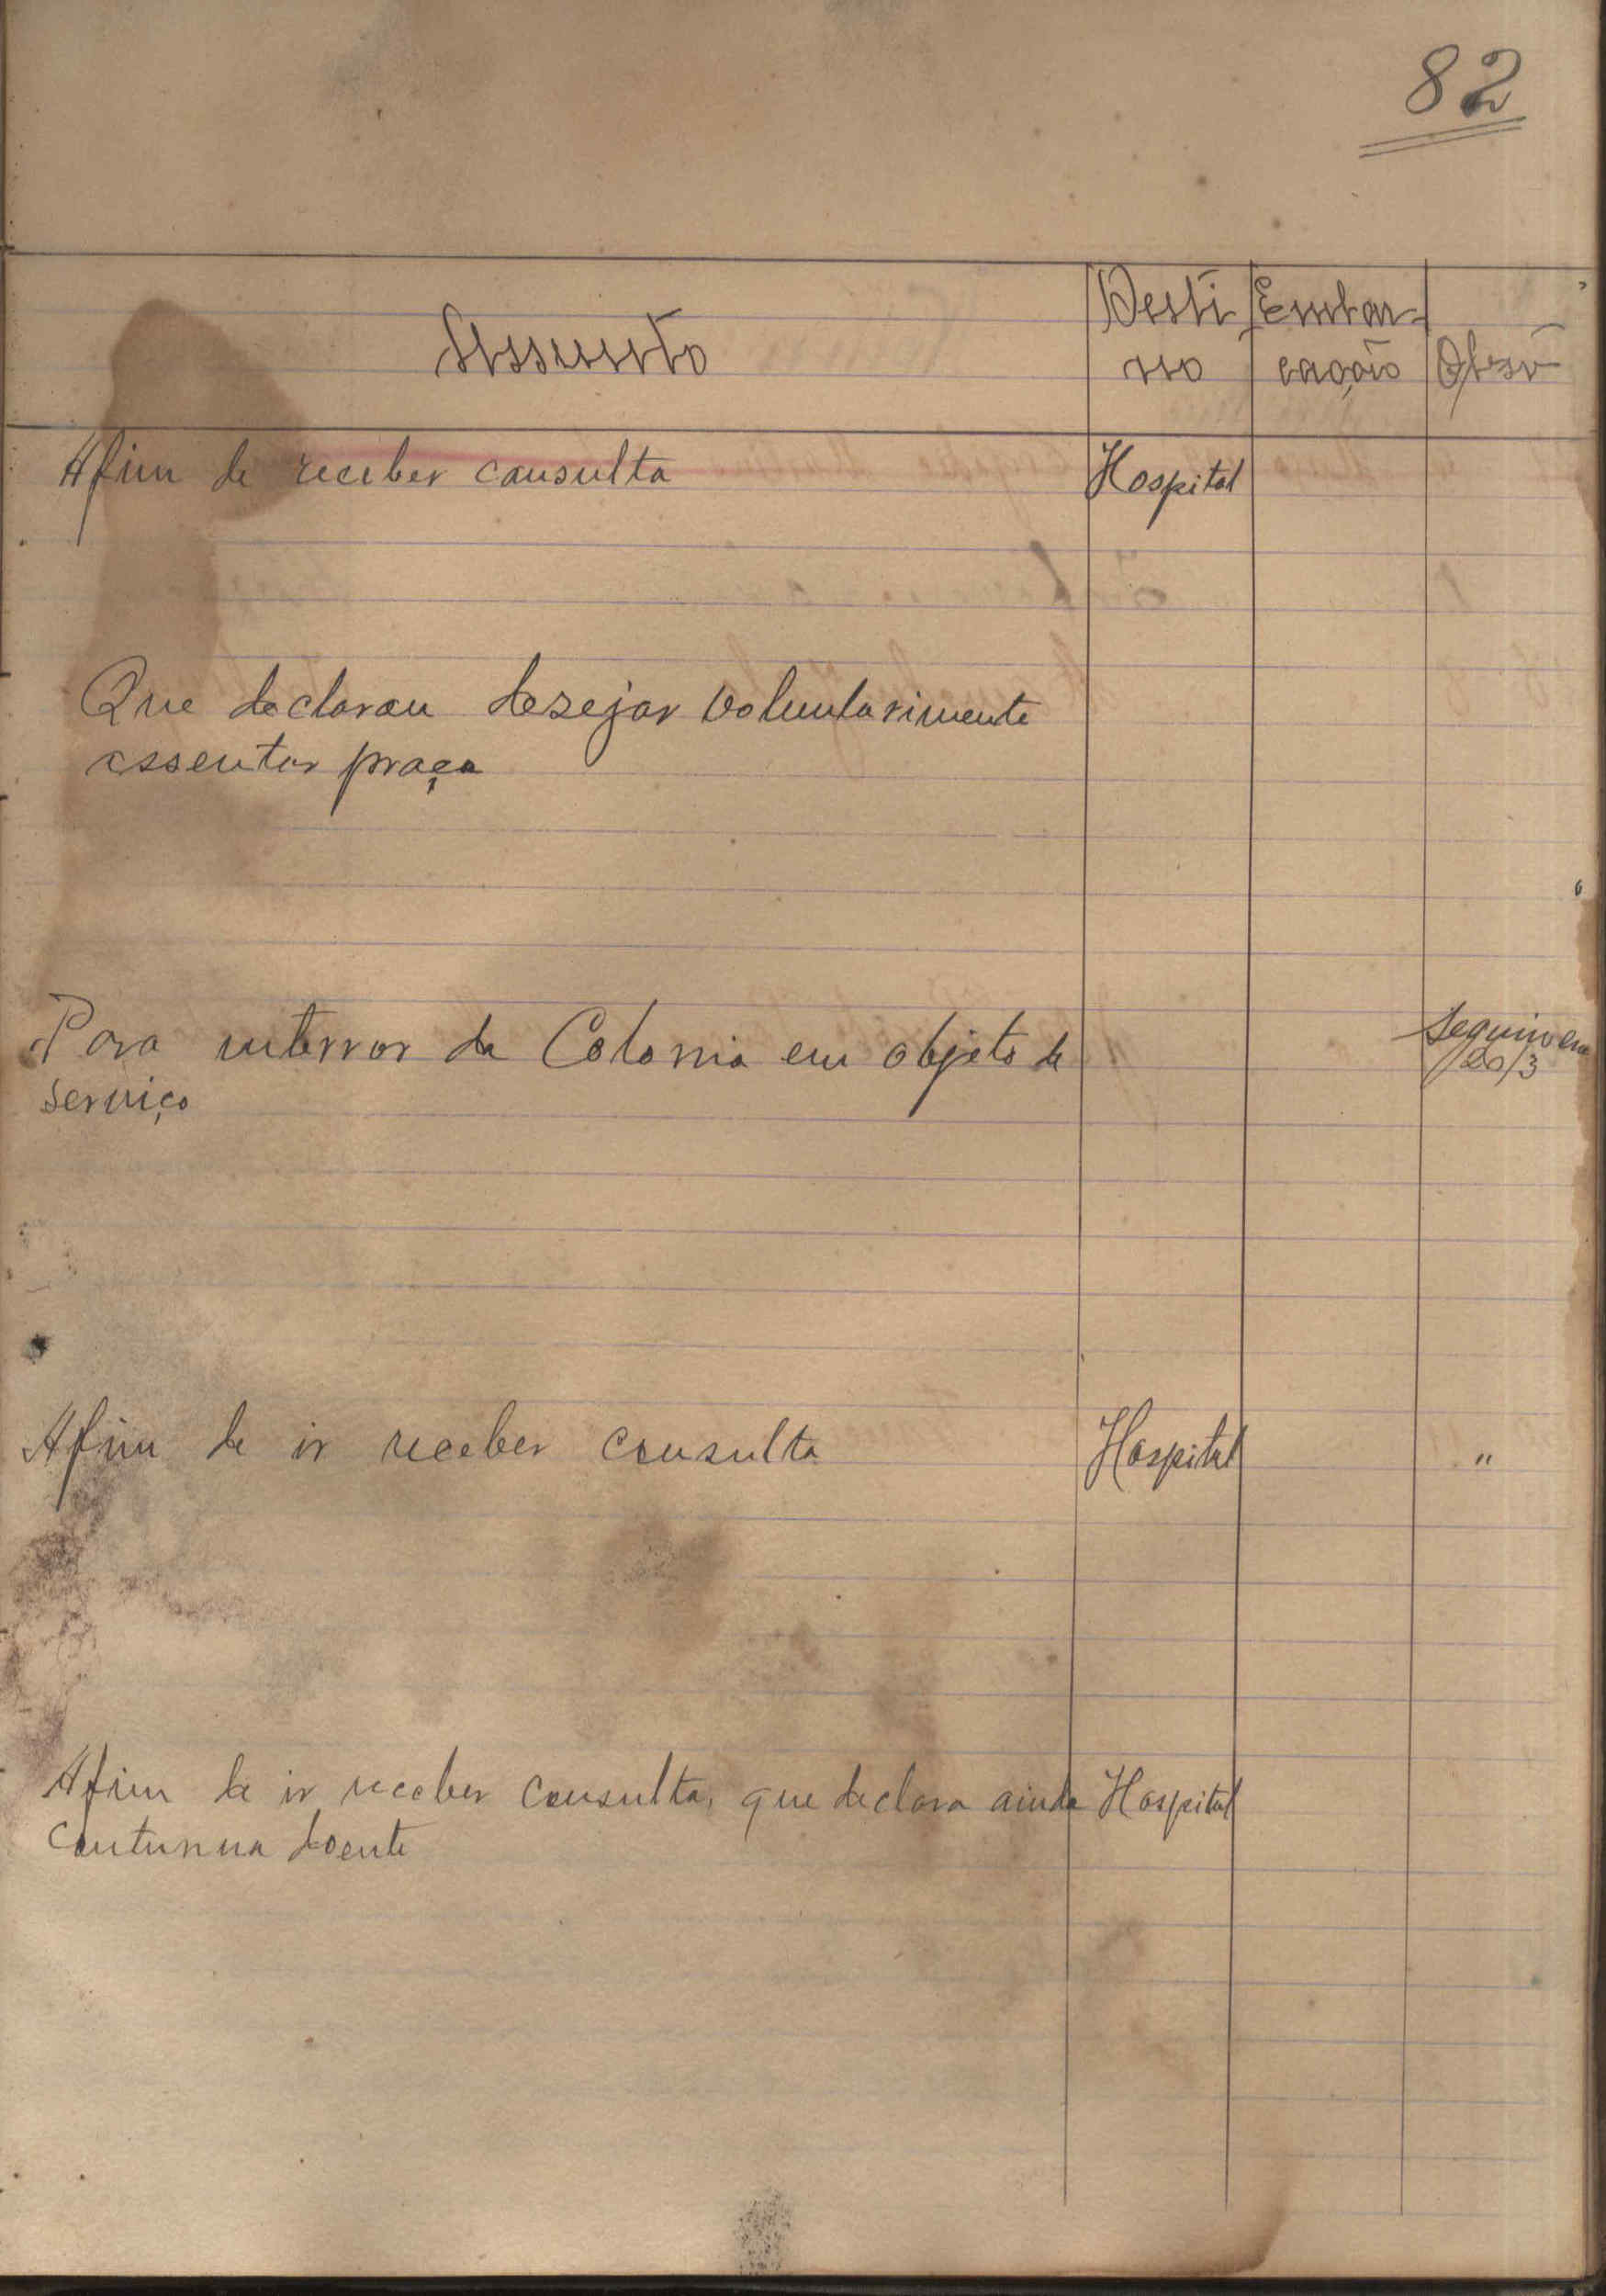 82
Assunto
Desti
no
Embar-
cação
Obsv
Afim de receber consulta
Hospital
Que declarou desejar voluntarimente
assentar praça
Para interior da Colonia em objeto de
serviço
Seguiu em
20/3
Afim de ir receber consulta
Hospital
"
Afim de ir receber consulta, que declara ainda
Hospital
continua doente